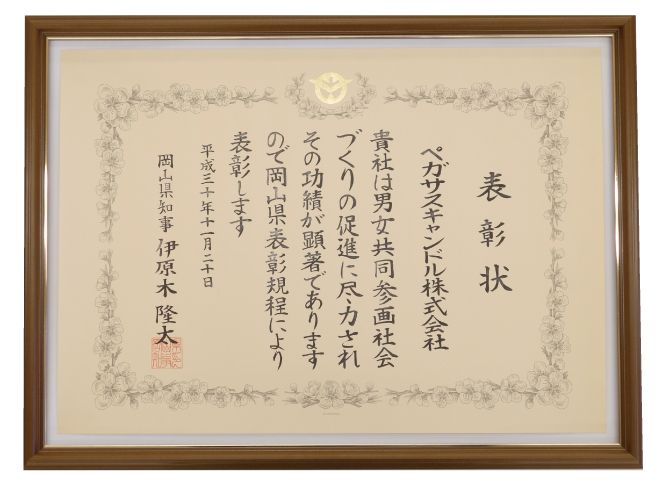 表彰状
ペガサスキャンドル株式会社
貴社は男女共同参画社会
づくりの促進に尽力され
その功績が顕著であります
ので岡山県表彰規程により
表彰します
平成三十年十一月二十日
岡山県知事 伊原木隆太